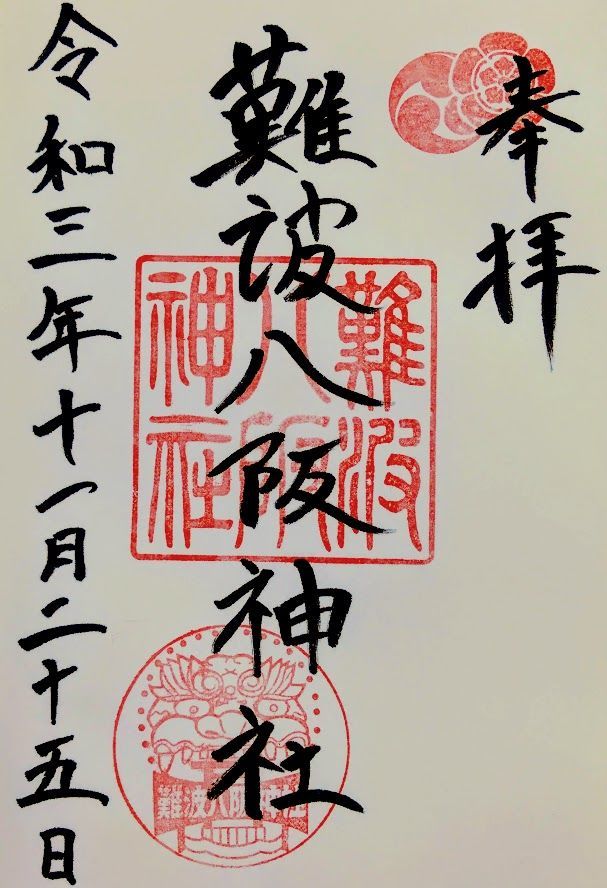 奉拝
難波八阪神社
令和三年十一月二十五日
難波
八阪
神社
難波八阪神社